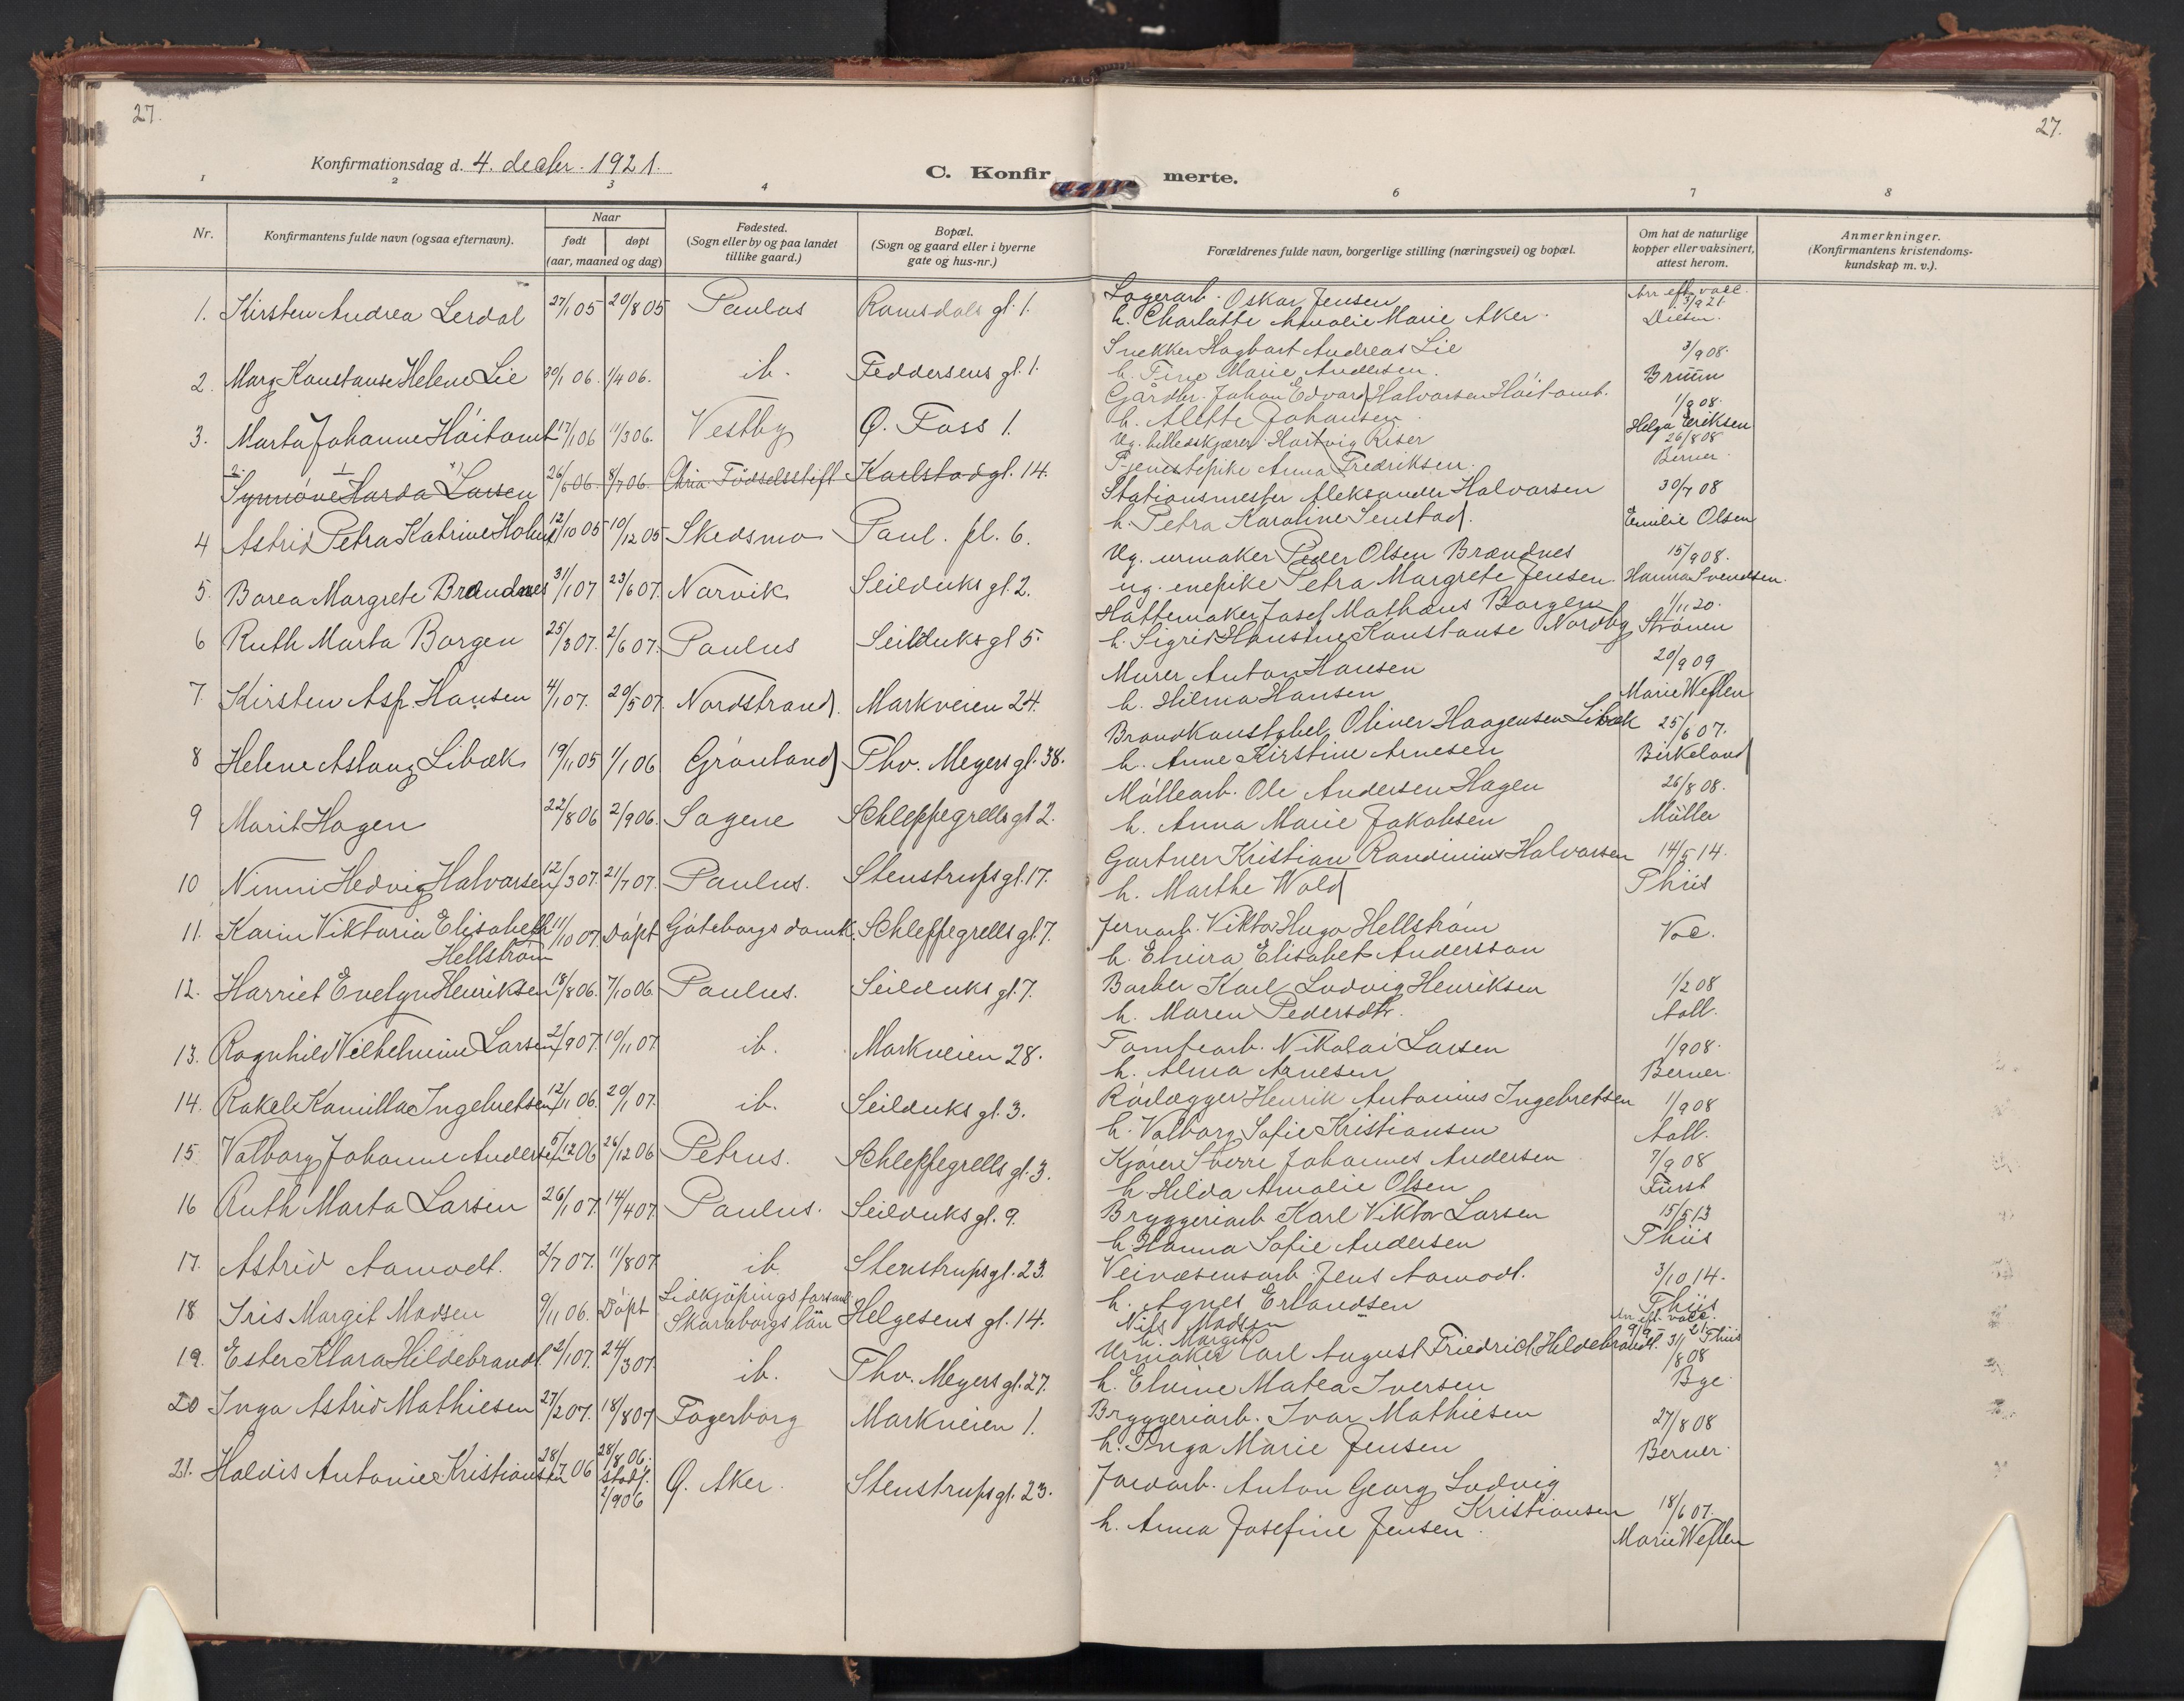 27.
27.
Konfirmationsdag d. 4. decbr. 1921.
C. Konfirmerte.
1 2 3 4 6 7 8
Nr.
Konfirmantens fulde navn (ogsaa efternavn).
Naar
født døpt
(aar, maaned og dag)
Fødested.
(Sogn eller by og paa landet
tillike gaard.)
Bopæl.
(Sogn og gaard eller i byerne
gate og hus-nr.)
Forældrenes fulde navn, borgerlige stilling (næringsvei) og bopæl.
Om hat de naturlige
kopper eller vaksinert,
attest herom.
Anmerkninger.
(Konfirmantens kristendoms-
kundskap m. v.).
1. Kirsten Andrea Lerdal 27/1 05 20/8 05 Paulus Ramsdals gt. 1.
Lagerarb. Oskar Jensen
h. Charlotte Amalie Marie Aker.
Arr eft. vacc.
13/9 21.
2. Marg Konstanse Helene Lie 30/1 06. 1/4 06. ib. Feddersens gt. 1.
Snekker Hagbart Andreas Lie
h. Tine Marie Andersen.
3/9 08.
Bruun
3. Marta Johanne Høitomt 17/1 06 11/3 06. Vestby Ø. Foss 1.
Gårdbr. Johan Edvard Halvorsen Høitomt.
h. Alette Johansen.
1/9 08.
Helga Eriksen
Synnøve Harda Larsen 26/6 06. 8/7 06. Chria Fødselsstift. Karlstadgt. 14.
Ug. billedskjærer Hartvig Riser
Tjenestepike Anna Fredriksen.
26/8 08
Berner.
4 Astrid Petra Katrine Holm 12/10 05 10/12 05 Skedsmo Paul. pl. 6.
Stationsmester Aleksander Halvorsen
h. Petra Karoline Senstad.
30/7 08
Emilie Olsen
5. Borea Margrete Brændnes 31/1 07 23/6 07. Narvik Seilduks gt. 2.
Ug. urmaker Peder Olsen Brændnes
ug. enepike Petra Margrete Jensen
15/9 08.
Hanna Svendsen.
6 Ruth Marta Borgen 25/3 07. 2/6 07. Paulus Seilduks gt 5.
Hattemaker Josef Mathæus Borgen
h. Sigrid Haustine Konstanse Nordby
1/11 20.
Strønen
7. Kirsten Asp. Hansen 4/1 07. 20/5 07. Nordstrand. Markveien 24.
Murer Anton Hansen
h. Hilma Hansen
20/9 09
Marie Weflen
8 Helene Aslaug Libæk 19/11 05 1/1 06 Grønland Thv. Meyers gt. 38.
Brandkonstabel Oliver Haagensen Libæk
h. Anne Kirstine Arnesen
25/6 07.
Birkeland
9 Marit Hagen 22/8 06 2/9 06. Sagene Schleppegrells gt 2.
Møllearb. Ole Andersen Hagen
h. Anna Marie Jakobsen
26/8 08.
Møller
10 Ninni Hedvig Halvorsen 12/3 07. 21/7 07. Paulus. Stenstrups gt. 17.
Gartner Kristian Randinius Halvorsen
h. Marthe Wold
14/5 14.
Thiis
11. Karin Viktoria Elisabeth 11/10 07 Døpt Gøteborgs domk. Schleppegrells gt 7.
Hellstrøm
Jernarb. Viktor Hugo Hellstrøm
h. Elvira Elisabet Andersson
Vac.
12. Harriet Evelyn Henriksen 18/8 06. 7/10 06. Paulus. Seilduks gt. 7.
Barber Karl Ludvig Henriksen
h. Maren Pedersdtr.
1/2 08
Aall.
13. Ragnhild Vilhelmine Larsen 2/9 07. 10/11 07 ib. Markveien 28.
Tomtearb. Nikolai Larsen
h. Alma Arnesen
1/9 08.
Berner.
14. Rakel Kamilla Ingebretsen 12/11 06. 20/1 07. ib. Seilduks gt. 3.
Rørlægger Henrik Antonius Ingebretsen
h. Valborg Sofie Kristiansen
1/9 08
Aall.
15. Valborg Johanne Andersen 5/12 06 26/12 06 Petrus. Schleppegrells gt. 3.
Kjører Sverre Johannes Andersen
h Hilda Amalie Olsen
7/9 08
Furst
16 Ruth Marta Larsen 26/1 07. 14/4 07. Paulus. Seilduks gt. 9.
Bryggeriarb Karl Viktor Larsen
h. Hanna Sofie Andersen
15/5 13
Thiis
17. Astrid Aamodt. 2/7 07. 11/8 07 ib Stenstrups gt. 23.
Veivæsensarb. Jens Aamodt.
h. Agnes Erlandsen
3/10 14.
Thiis
18 Iris Margit Madsen 9/11 06. Døpt Lidkjøpings forsaml. Skaraborgs län Helgesens gt. 14.
Nils Madsen
h. Margit
Arr eft. vacc.
9/9 21 Thiis
19. Ester Klara Hildebrandt. 2/1 07. 24/3 07. ib. Thv. Meyers gt. 27.
Urmaker Carl August Friedrich Hildebrandt.
h. Elvine Matea Iversen
31/8 08
Bye
20 Inga Astrid Mathiesen 27/2 07. 18/8 07 Fagerborg Markveien 1.
Bryggeriarb. Ivar Mathiesen
h. Inga Marie Jensen
27/8 08
Berner.
21. Haldis Antonie Kristiansen 28/7 06 28/8 06. stadf. 2/9 06 Ø. Aker. Stenstrups gt. 23.
Jordarb. Anton Georg Ludvig
Kristiansen
h. Anna Josefine Jensen.
18/6 07.
Marie Weflen